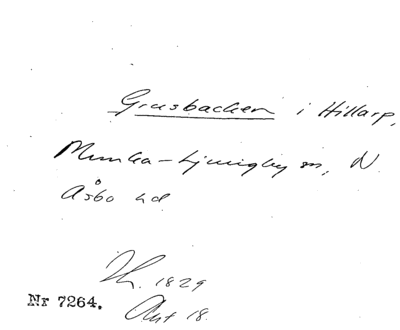 Grusbacken i Hillarp,
Munka-Ljungby sn, N.
Åsbo hd
1829
Nr 7264.
Akt 18.